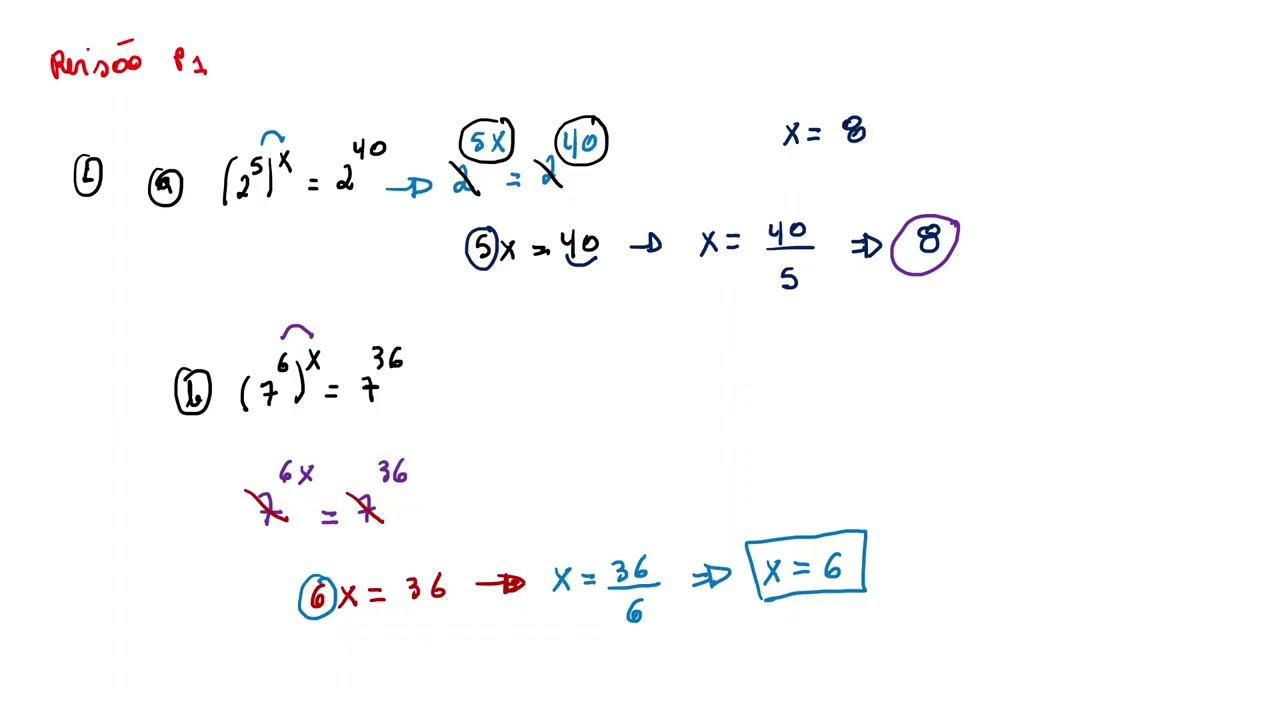 Revisão P1
1 a (2^5)^x = 2^40 → 2^5x = 2^40 x = 8
5x = 40 → x = 40/5 ⇒ 8
b (7^6)^x = 7^36
7^6x = 7^36
6x = 36 → x = 36/6 ⇒ x = 6